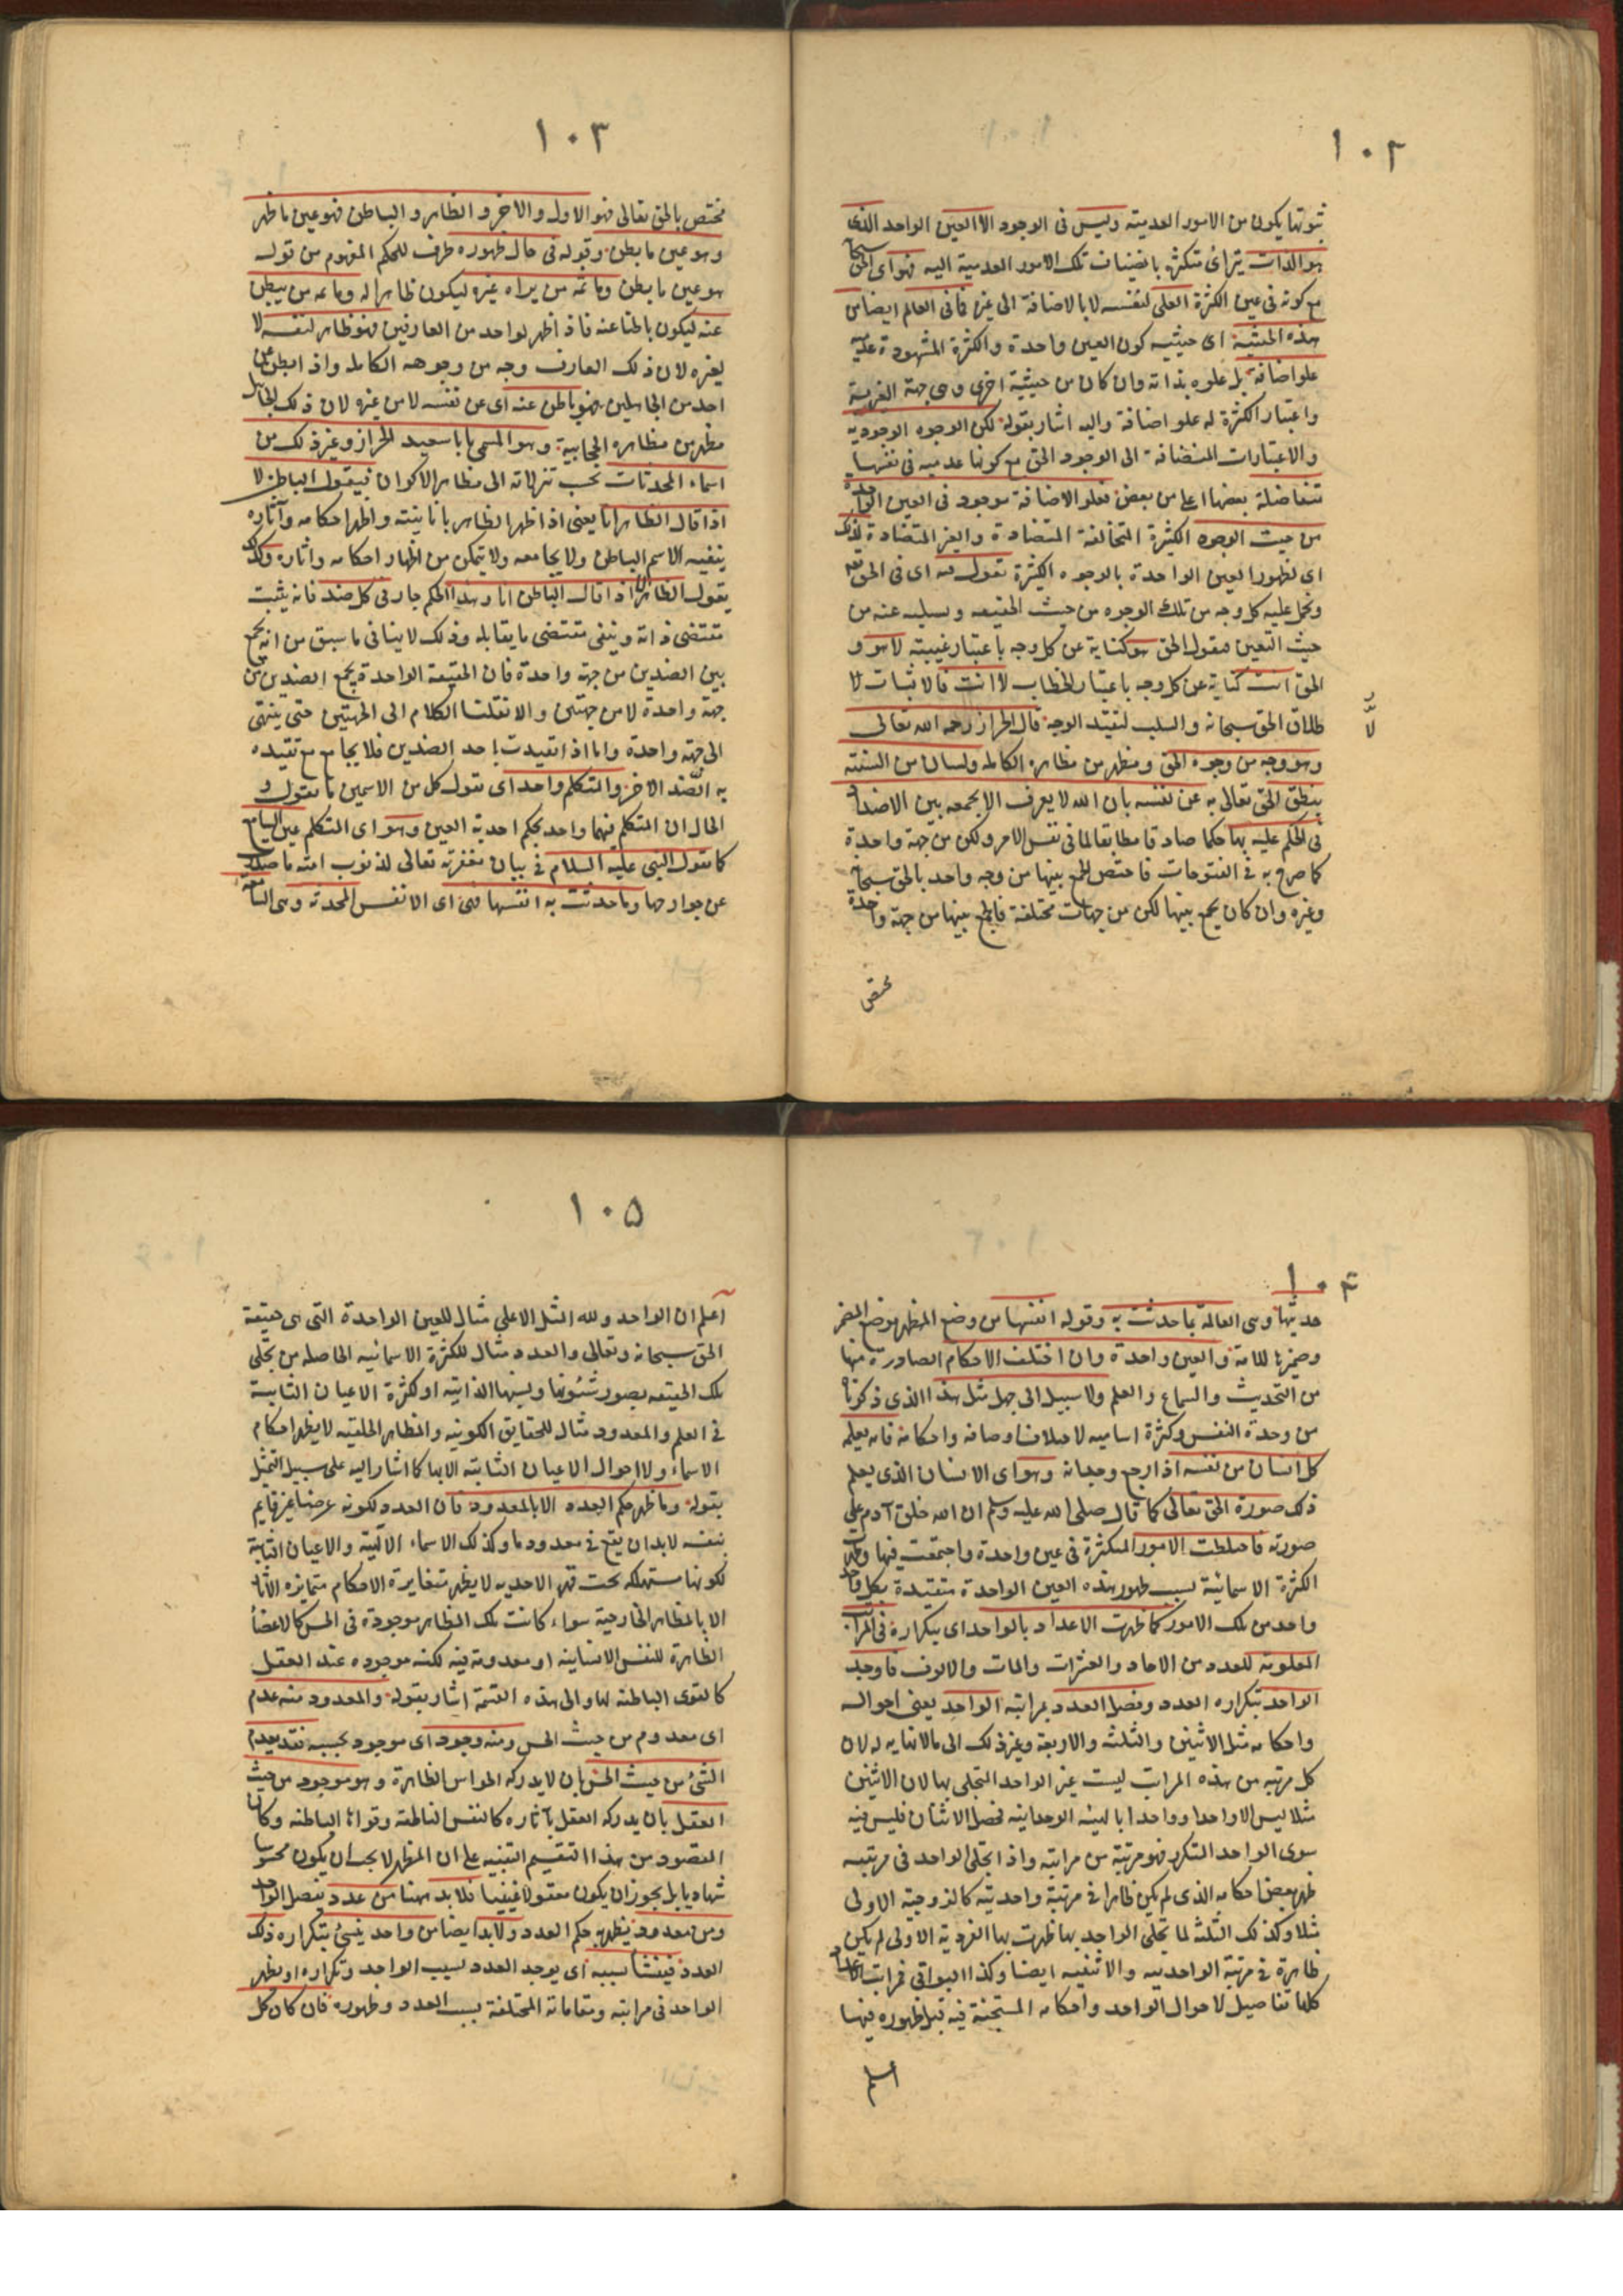 ١٠٢
ثبوتها يكون من الامور العدمية وليس فى الوجود الا العين الواحد الذى
هو الذات يترائ متكثرة بانضياف تلك الامور العدمية اليه فهو اى الحق سبحانه
مع كونه فى عين الكثرة العلى لنفسه لا بالاضافة الى غيره فما فى العالم ايضا من
هذه الحيثية اى حيثية كون العين واحدة والكثرة المشهودة عدمية
علو اضافة بل علوه بذاته وان كان من حيثية اخرى وهى جهة الغيرية
واعتبار الكثرة له علو اضافة واليه اشار بقوله لكن الوجوه الوجودية
والاعتبارات المنضافة الى الوجود الحق مع كونها عدمية فى نفسها
متفاضلة بعضها اعلى من بعض فعلو الاضافة موجود فى العين الواحدة
من حيث الوجوه الكثيرة المتخالفة المتضادة والغير المتضادة لذلك
اى لظهور العين الواحدة بالوجوه الكثيرة نقول فيه اى فى الحق
ونحمل عليه كل وجه من تلك الوجوه من حيث الحقيقه ونسلبه عنه من
حيث التعين فنقول الحق هو كناية عن كل وجه باعتبار غيبته لا هو و
الحق انت كناية عن كل وجه باعتبار الخطاب لا انت فالاثبات لا
طلاق الحق سبحانه والسلب لتقيد الوجه قال الخراز رحمه الله تعالى
وهو وجه من وجوه الحق ومظهر من مظاهره الكاملة ولسان من السنته
ينطق الحق تعالى به عن نفسه بان الله لا يعرف الا بجمعه بين الاضداد
فى الحكم عليه بها حكما صادقا مطابقا لما فى نفس الامر ولكن من جهة واحدة
كما صرح به فى الفتوحات فاختص الجمع بينها من وجه واحد بالحق سبحانه
وغيره وان كان يجمع بينها لكن من جهات مختلفة فالجمع بينها من جهة واحدة
مختص
١٠٣
مختص بالحق تعالى فهو الاول والاخر والظاهر والباطن فهو عين ما ظهر
وهو عين ما بطن وقوله فى حال ظهوره ظرف للحكم المفهوم من قوله
هو عين ما بطن وما ثمه من يراه غيره ليكون ظاهرا له وما ثمه من يبطن
عنه ليكون باطنا عنه فاذا ظهر لواحد من العارفين فهو ظاهر لنفسه لا
لغيره لان ذلك العارف وجه من وجوهه الكاملة واذا بطن عن
احد من الجاهلين فهو باطن عنه اى عن نفسه لا من غيره لان ذلك الجاهل
مظهر من مظاهره الحجابية وهو المسمى با با سعيد الخراز وغير ذلك من
اسماء المحدثات بحسب تنزلاته الى مظاهر الاكوان فيقول الباطن لا
اذا قال الظاهر انا يعنى اذا ظهر الظاهر بانانيته واظهر احكامه وآثاره
ينفيه الاسم الباطن ولا يجامعه ولا يتمكن من اظهار احكامه واثاره وكذلك
يقول الظاهر لا اذا قال الباطن انا وهذا الحكم جار فى كل ضد فانه يثبت
مقتضى ذاته وينفى مقتضى ما يقابله وذلك لا ينافى ما سبق من انه يجمع
بين الضدين من جهة واحدة فان الحقيقة الواحدة يجمع الضدين من
جهة واحدة لا من جهتين والا نقلنا الكلام الى الجهتين حتى ينتهى
الى جهة واحدة واما اذا تقيدت باحد الضدين فلا يجامع مع تقيده
به الضد الاخر والمتكلم واحد اى يقول كل من الاسمين ما يقول و
الحال ان المتكلم فيهما واحد بحكم احدية العين وهو اى المتكلم عين السامع
كما يقول النبى عليه السلام فى بيان مغفرته تعالى لذنوب امته ما صدرت
عن جوارحها وما حدثت به انفسها فهى اى الانفس المحدثة وهى السامعة
١٠٤
حديثها وهى العالمة بما حدثت به وقوله انفسها من وضع المظهر موضع المضمر
وضميرها للامة والعين واحدة وان اختلف الاحكام الصادرة منها
من التحديث والسماع والعلم ولا سبيل الى جهل مثل هذا الذى ذكرناه
من وحدة النفس وكثرة اساميه لاختلاف اوصافه واحكامه فانه يعلمه
كل انسان من نفسه اذا رجع وجدانه وهو اى الانسان الذى يعلم
ذلك صورة الحق تعالى كما قال صلى الله عليه وسلم ان الله خلق آدم على
صورته فاختلطت الامور المتكثرة فى عين واحدة واجتمعت فيها وظهرت
الكثرة الاسمائية بسبب ظهور هذه العين الواحدة متقيدة بكل واحد
واحد من تلك الامور كما ظهرت الاعداد بالواحد اى بتكراره فى المراتب
المعلومة للعدد من الاحاد والعشرات والمات والالوف فاوجد
الواحد بتكراره العدد وفصل العدد بمراتبه الواحد يعنى احواله
واحكامه مثل الاثنين والثلثه والاربعة وغير ذلك الى مالانهايه له لان
كل مرتبه من هذه المراتب ليست غير الواحد المتجلى بها لان الاثنين
مثلا ليس الا واحدا وواحدا بالهيئة الوحدانيه فحصل الاثنان فليس فيه
سوى الواحد المتكرر فهو مرتبة من مراتبه واذا تجلى الواحد فى مرتبه
ظهر بعض احكامه الذى لم يكن ظاهرا فى مرتبة واحديته كالزوجية الاولى
مثلا وكذلك الثلثة لما تجلى الواحد بها ظهرت بها الفردية الاولى لم يكن
ظاهرة فى مرتبة الواحديه والاثنينيه ايضا وكذا البواقى فمراتب الاعداد
كلها تفاصيل لاحوال الواحد واحكامه المستجنة فيه قبل ظهوره فيها
اعلم
١٠٥
اعلم ان الواحد ولله المثل الاعلى مثال للعين الواحدة التى هى حقيقة
الحق سبحانه وتعالى والعدد مثال للكثرة الاسمائيه الحاصله من تجلى
تلك الحقيقه بصور شئونها ونسبها الذاتيه او لكثرة الاعيان الثابتة
فى العلم والمعدود مثال للحقايق الكونيه والمظاهر الخلقيه لا يظهر احكام
الاسماء ولا احوال الاعيان الثابته الا بها كما اشار اليه على سبيل التمثيل
بقوله وما ظهر حكم العدد الا بالمعدود فان العدد لكونه عرضا غير قايم
بنفسه لا بد ان يقع فى معدود ما وكذلك الاسماء الالهية والاعيان الثابتة
لكونها مستهلكه تحت قهر الاحديه لا يظهر متغايرة الاحكام متمايزه الآثار
الا بالمظاهر الخارجية سواء كانت تلك المظاهر موجودة فى الحس كالاعضاء
الظاهرة للنفس الانسانيه او معدومة فيه لكنه موجوده عند العقل
كالقوى الباطنه لها والى هذه القسمة اشار بقوله والمعدود منه عدم
اى معدوم من حيث الحس ومنه وجود اى موجود بحسبه فقد يعدم
الشئ من حيث الحس بان لا يدركه الحواس الظاهرة وهو موجود من حيث
العقل بان يدركه العقل بآثاره كالنفس الناطقة وقواها الباطنه وكان
المقصود من هذا التقسيم التنبيه على ان المظهر لا يجب ان يكون محسوسا
شهاديا بل يجوز ان يكون معقولا غيبيا فلا بد ههنا من عدد يفصل الواحد
ومن معدود يظهر به حكم العدد ولابد ايضا من واحد ينشئ بتكراره ذلك
العدد فينشأ بسببه اى يوجد العدد بسبب الواحد وتكراره او يظهر
الواحد فى مراتبه ومقاماته المختلفة بسبب العدد وظهوره فان كان كل